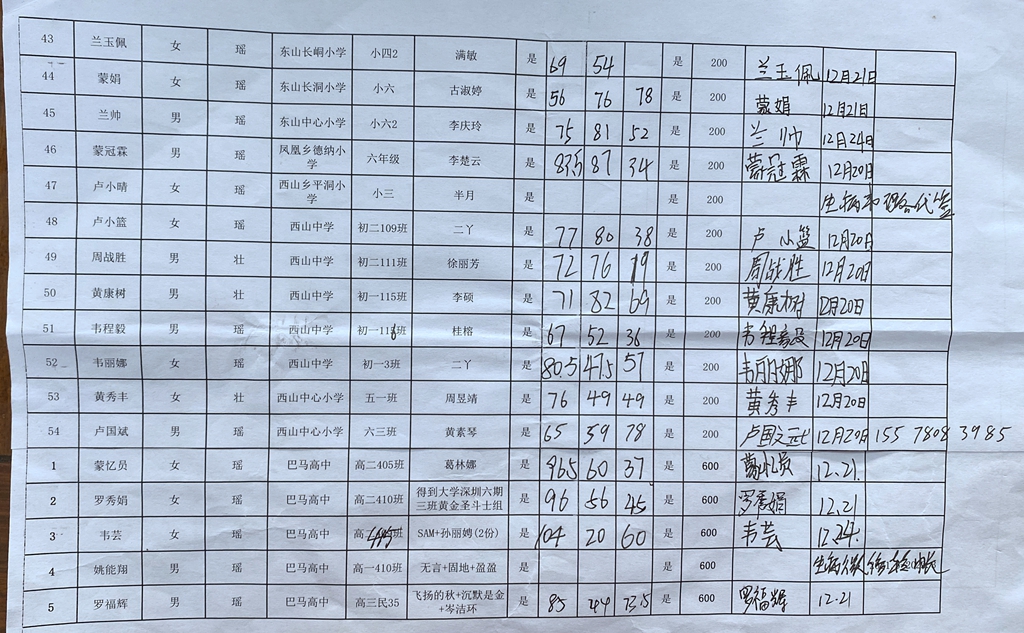 43 兰玉佩 女 瑶 东山长峒小学 小四2 满敏 是 69 54 是 200 兰玉佩 12月21日
44 蒙娟 女 瑶 东山长洞小学 小六 古淑婷 是 56 76 78 是 200 蒙娟 12月21日
45 兰帅 男 瑶 东山中心小学 小六2 李庆玲 是 75 81 52 是 200 兰帅 12月24日
46 蒙冠霖 男 瑶 凤凰乡德纳小学 六年级 李楚云 是 83.5 87 34 是 200 蒙冠霖 12月20日
47 卢小晴 女 瑶 西山乡平洞小学 小三 半月 是 是 200 生病 代签
48 卢小篮 女 瑶 西山中学 初二109班 二丫 是 77 80 38 是 200 卢小篮 12月20日
49 周战胜 男 壮 西山中学 初二111班 徐丽芳 是 72 76 19 是 200 周战胜 12月20日
50 黄康树 男 壮 西山中学 初一115班 李硕 是 71 82 69 是 200 黄康树 12月20日
51 韦程毅 男 瑶 西山中学 初一118班 桂榕 是 67 52 36 是 200 韦程毅 12月20日
52 韦丽娜 女 瑶 西山中学 初一3班 二丫 是 80.5 47.5 57 是 200 韦丽娜 12月20日
53 黄秀丰 女 壮 西山中心小学 五一班 周昱靖 是 76 49 49 是 200 黄秀丰 12月20日
54 卢国斌 男 瑶 西山中心小学 六三班 黄素琴 是 65 59 78 是 200 卢国文 12月20日 155 7808 3985
1 蒙忆员 女 瑶 巴马高中 高二405班 葛林娜 是 96.5 60 37 是 600 蒙忆员 12.21.
2 罗秀娟 女 瑶 巴马高中 高二410班 得到大学深圳六期三班黄金圣斗士组 是 96 56 45 是 600 罗秀娟 12.21
3 韦芸 女 瑶 巴马高中 SAM+孙丽娉(2份) 是 104 20 60 是 600 韦芸 12.24.
4 姚能翔 男 瑶 巴马高中 高一410班 无言+固地+盈盈 是 是 600 生病
5 罗福辉 男 瑶 巴马高中 高三民35 飞扬的秋+沉默是金+岑洁环 是 85 44 73.5 是 600 罗福辉 12.21